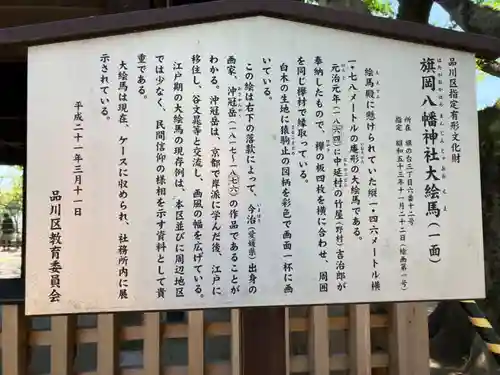 品川区指定有形文化財
はたがおかはちまんじんじゃおおえま
旗岡八幡神社大絵馬(一面)
所在 旗の台三丁目六番十二号
指定 昭和五十三年十一月二十二日(絵画第一号)
絵馬殿に懸けられていた縦一・四六メートル横
一・七八メートルの庵形の大絵馬である。
元治元年(一八六四)中延村の竹屋(野村)吉治郎が
奉納したもので、欅の板四枚を横に合わせ、周囲
を同じ欅材で縁取っている。
白木の生地に猿駒止の図柄を彩色で画面一杯に画
いている。
この絵は右下の落款によって、今治(愛媛県)出身の
画家、沖冠岳(一八一七〜一八七六)の作品であることが
わかる。沖冠岳は、京都で岸派に学んだ後、江戸に
移住し、谷文晁等と交流し、画風の幅を広げている。
江戸期の大絵馬の現存例は、本区並びに周辺地区
では少なく、民間信仰の様相を示す資料として貴
重である。
大絵馬は現在、ケースに収められ、社務所内に展
示されている。
平成二十一年三月十一日
品川区教育委員会